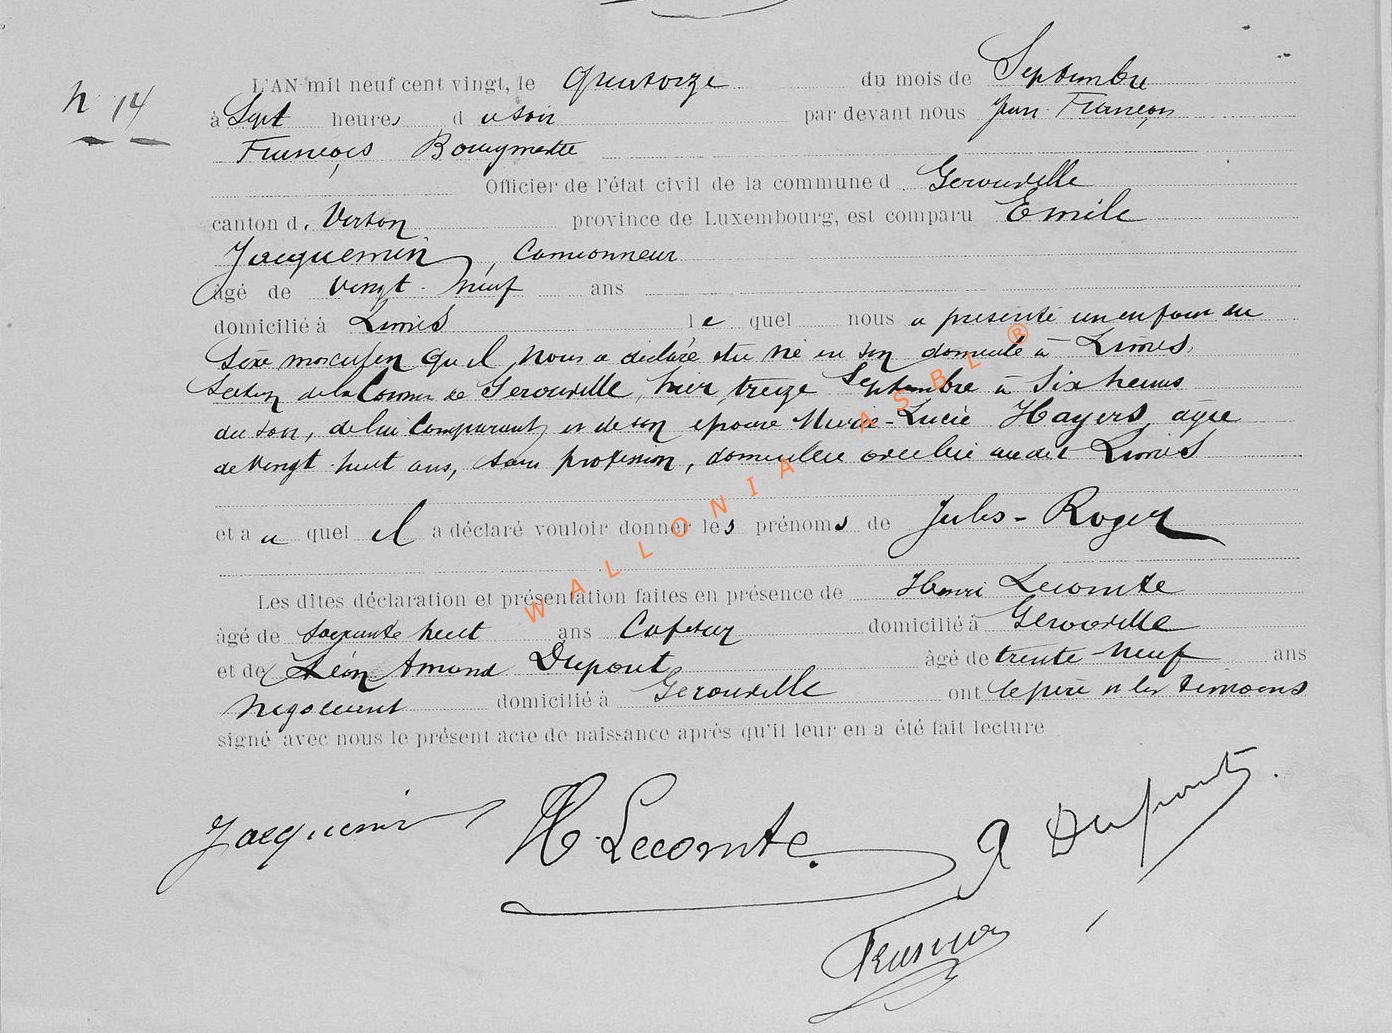 N 14
L'AN mil neuf cent vingt, le quatorze du mois de Septembre
à Sept heures d u soir par devant nous Jean François
François Bourgmestre
Officier de l'état civil de la commune d Gerouville
canton d. Virton province de Luxembourg, est comparu Emile
Jacquemin, Camionneur
âgé de vingt-neuf ans
domicilié à Limes le quel nous a présenté un enfant du
sexe masculin qu'il nous a déclaré être né en son domicile à Limes,
section de la Commune de Gerouville, hier treize Septembre à Six heures
du soir, de lui Comparant, et de son épouse Marie-Lucie Hayers, agée
de vingt-huit ans, sans profession, domiciliée avec lui au dit Limes
et a u quel il a déclaré vouloir donner les prénoms de Jules-Roger
Les dites déclaration et présentation faites en présence de Henri Lecomte
âgé de soixante huit ans Cafetier domicilié à Gerouville
et de Léon Amand Dupont âgé de trente neuf ans
négociant domicilié à Gerouville ont le père et les témoins
signé avec nous le présent acte de naissance après qu'il leur en a été fait lecture
Jacquemin H. Lecomte. A Dupont.
François
WALLONIA ASBL ®